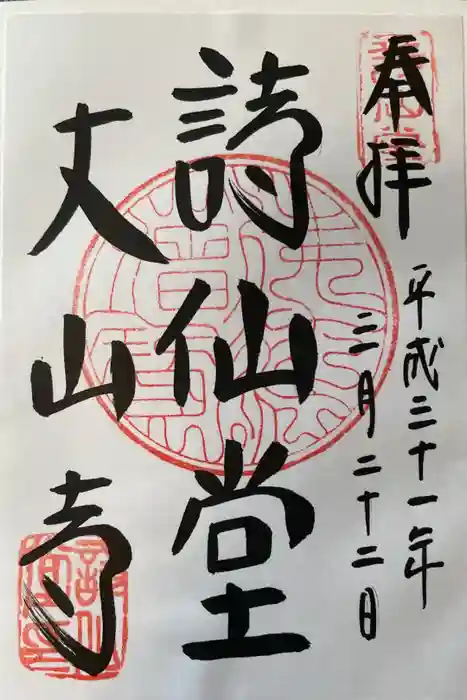 奉拝
平成三十一年
三月二十二日
詩仙堂
丈山寺